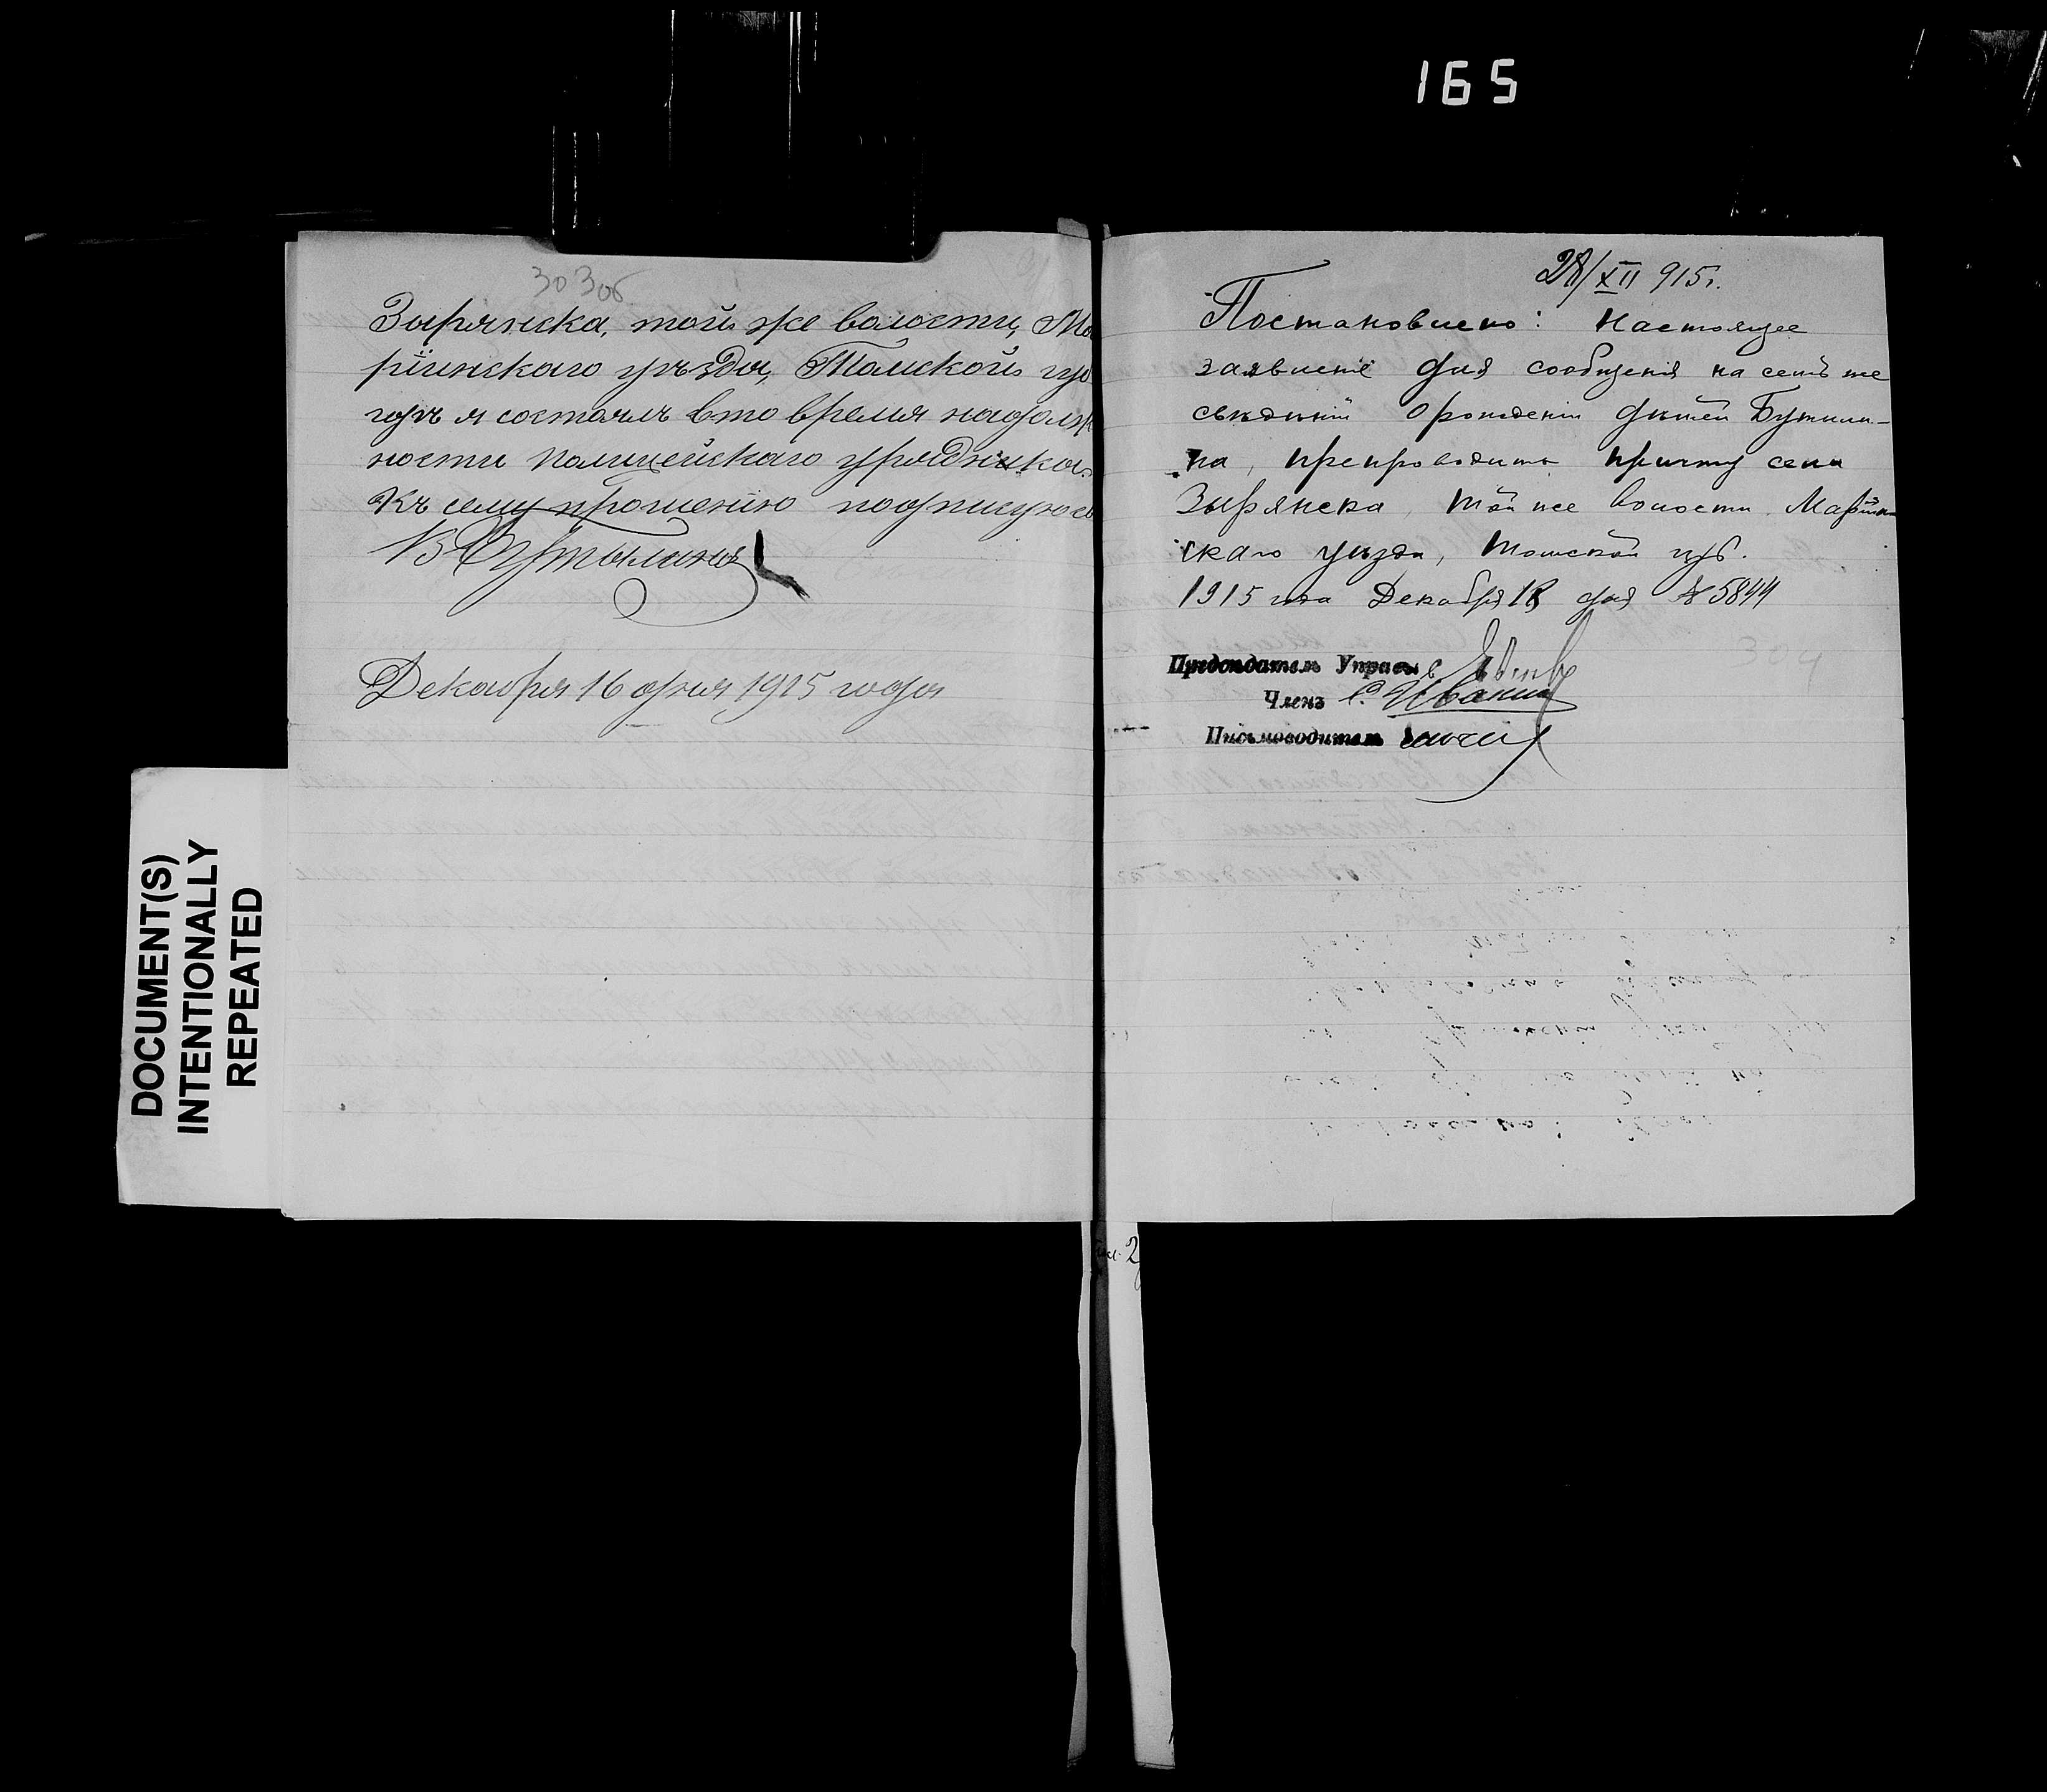 165
303об
Зырянска, той же волости, Ма
ріинскаго уѣзда, Томской гу
гдѣ я состоялъ въ то время на долж
ности полицейскаго урядника.
Къ сему прошенію подписуюсь
В Бутылинъ
Декабря 16 дня 1915 года
28/XII 915 г.
Постановлено: Настоящее
заявленіе для сообщенія на семъ же
свѣдѣній о рожденіи дѣтей Бутыли-
на, препроводить причту села
Зырянска, той же волости Маріин
скаго уѣзда, Томской губ.
1915 года Декабря 18 дня № 5844
Предсѣдатель Управы
Членъ С. Иванин
Письмоводитель
304
DOCUMENT(S)
INTENTIONALLY
REPEATED